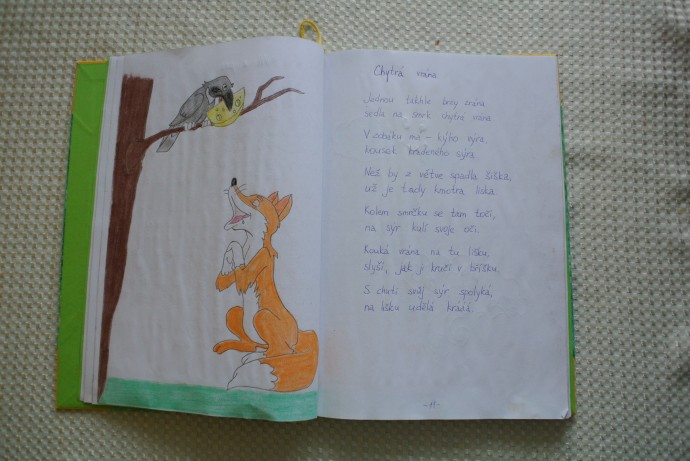 Chytrá vrána
Jednou takhle brzy zrána
sedla na smrk chytrá vrána.
V zobáku má - kýho výra,
kousek kradeného sýra.
Než by z větve spadla šiška,
už je tady kmotra liška.
Kolem smrčku se tam točí,
na sýr kulí svoje oči.
Kouká vrána na tu lišku,
slyší, jak jí kručí v bříšku.
S chutí svůj sýr spolyká,
na lišku udělá